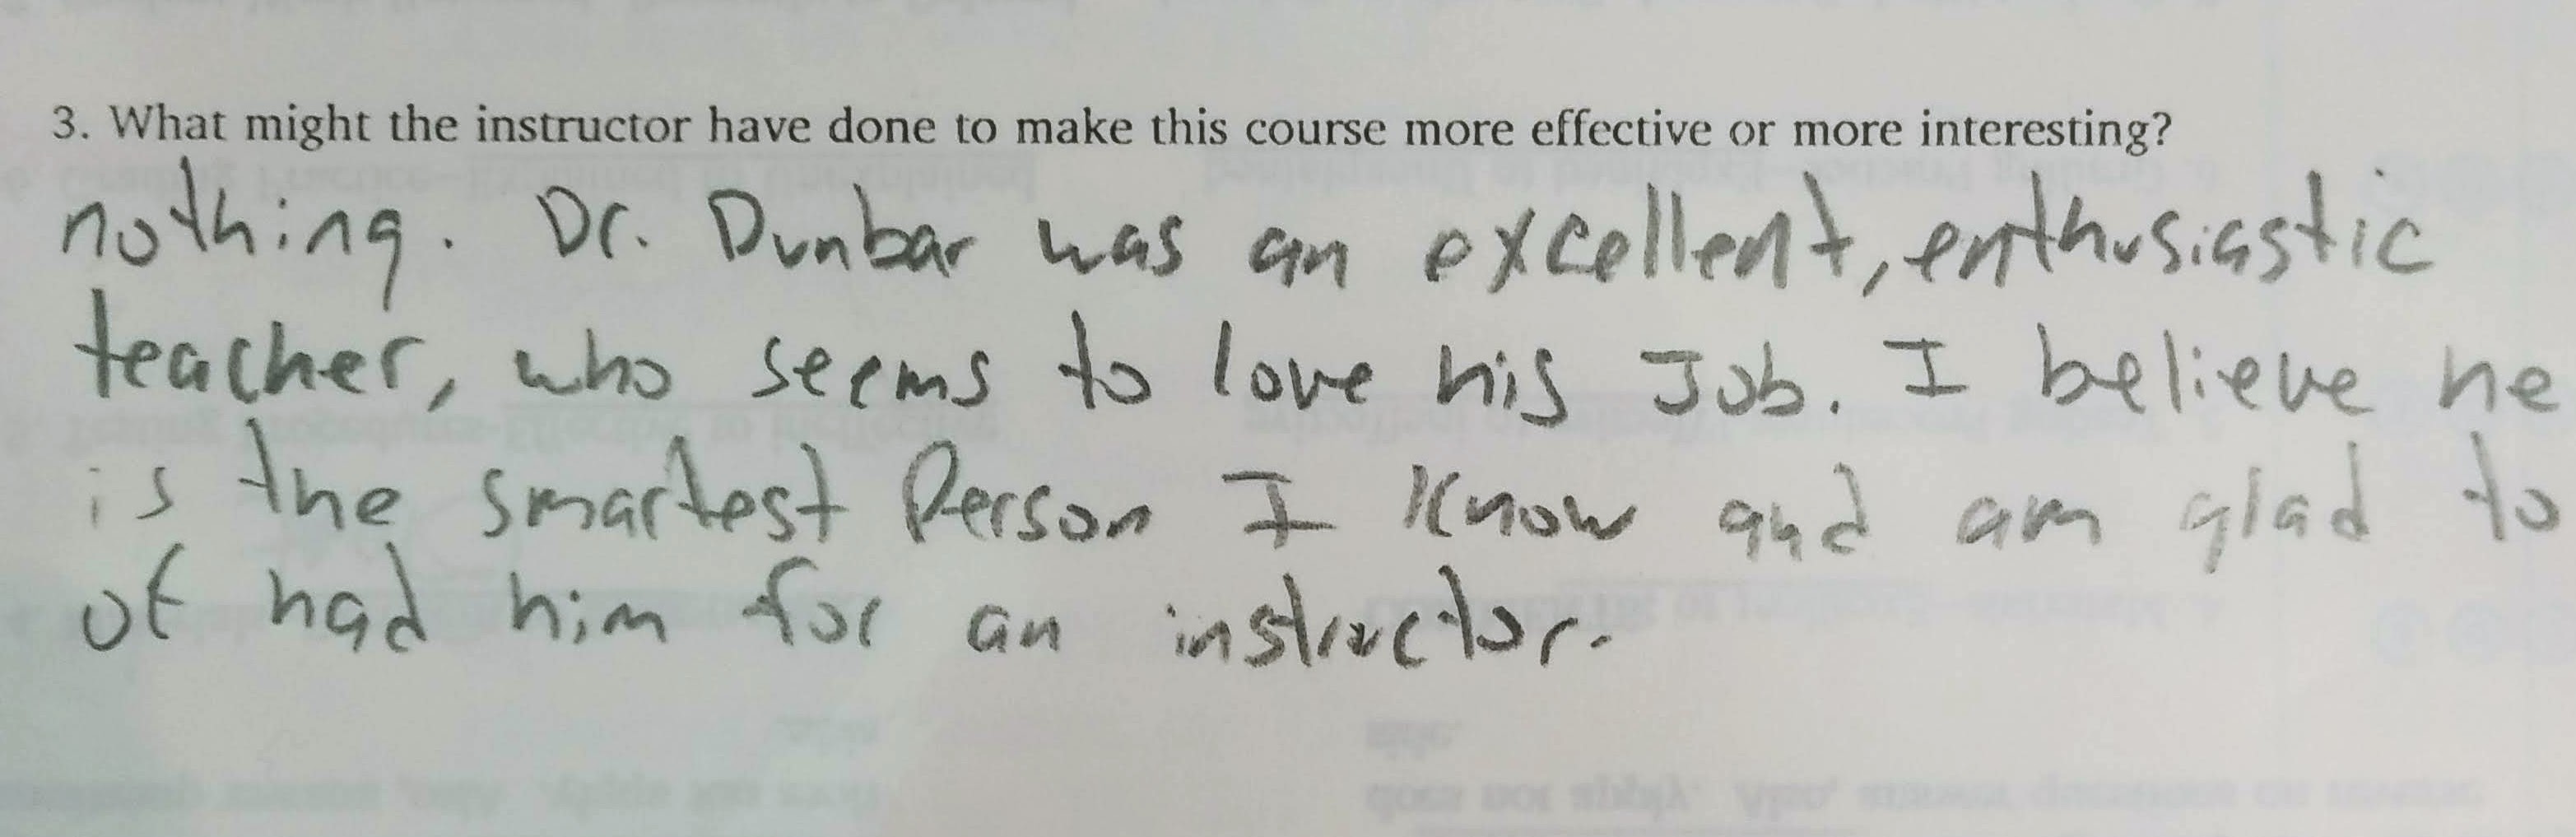 3. What might the instructor have done to make this course more effective or more interesting?
nothing. Dr. Dunbar was an excellent, enthusiastic
teacher, who seems to love his Job. I believe he
is the smartest Person I Know and am glad to
of had him for an instructor.